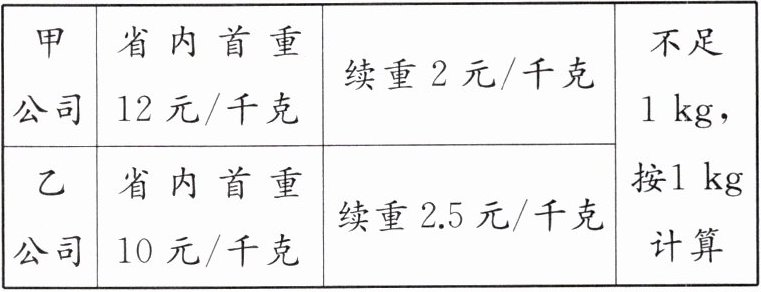 甲公司
省内首重
12元/千克
续重2元/千克
不足
1 kg,
按1 kg
计算
乙公司
省内首重
10元/千克
续重2.5元/千克